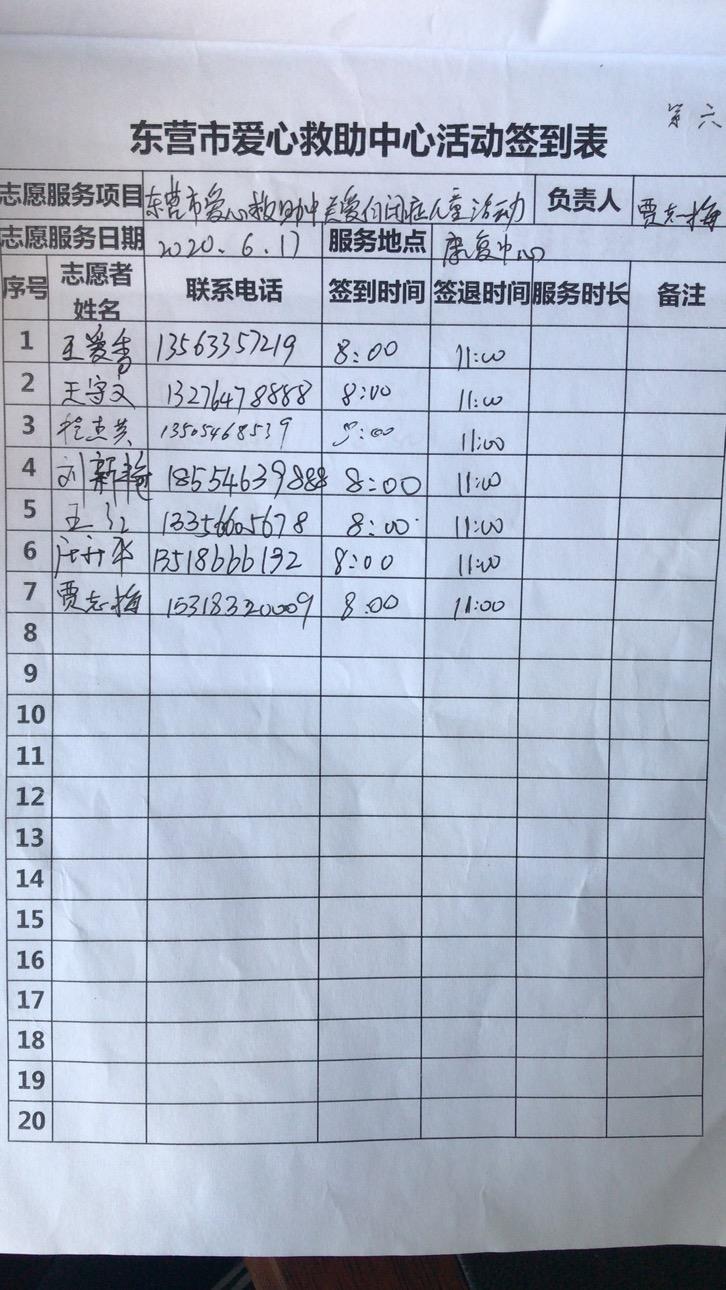 第六
东营市爱心救助中心活动签到表
志愿服务项目 东营市爱心救助中关爱自闭症儿童活动 负责人 贾志梅
志愿服务日期 2020.6.17 服务地点 康复中心
序号 志愿者姓名 联系电话 签到时间 签退时间 服务时长 备注
1 王爱香 13563357219 8:00 11:00
2 王守文 13276478888 8:00 11:00
3 13505468539 8:00 11:00
4 刘新艳 18554639888 8:00 11:00
5 王红 13356605678 8:00 11:00
6 13518666192 8:00 11:00
7 贾志梅 15318320009 8:00 11:00
8
9
10
11
12
13
14
15
16
17
18
19
20